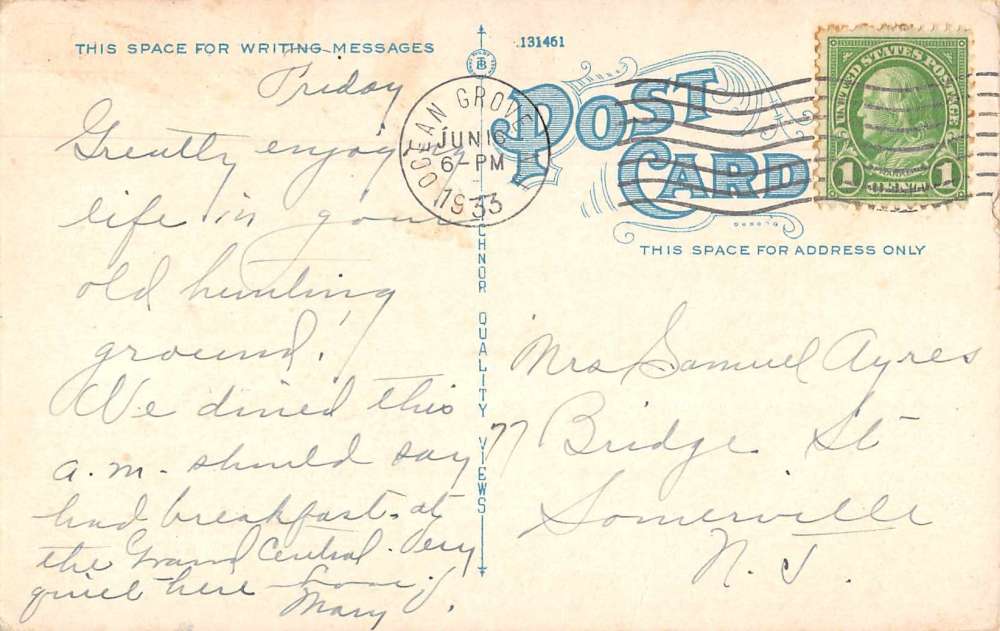 THIS SPACE FOR WRITING MESSAGES
Friday
Greatly enjoying
life in your
old hunting
ground!
We dined this
a.m. - should say
had breakfast at
the Grand Central. Very
quiet here - Love.
Mary J.
TICHNOR QUALITY VIEWS
131461
POST
CARD
THIS SPACE FOR ADDRESS ONLY
OCEAN GROVE
JUN 16
6-PM
1933
UNITED STATES POSTAGE
1 1
Mrs Samuel Ayres
77 Bridge St
Somerville
N. J.